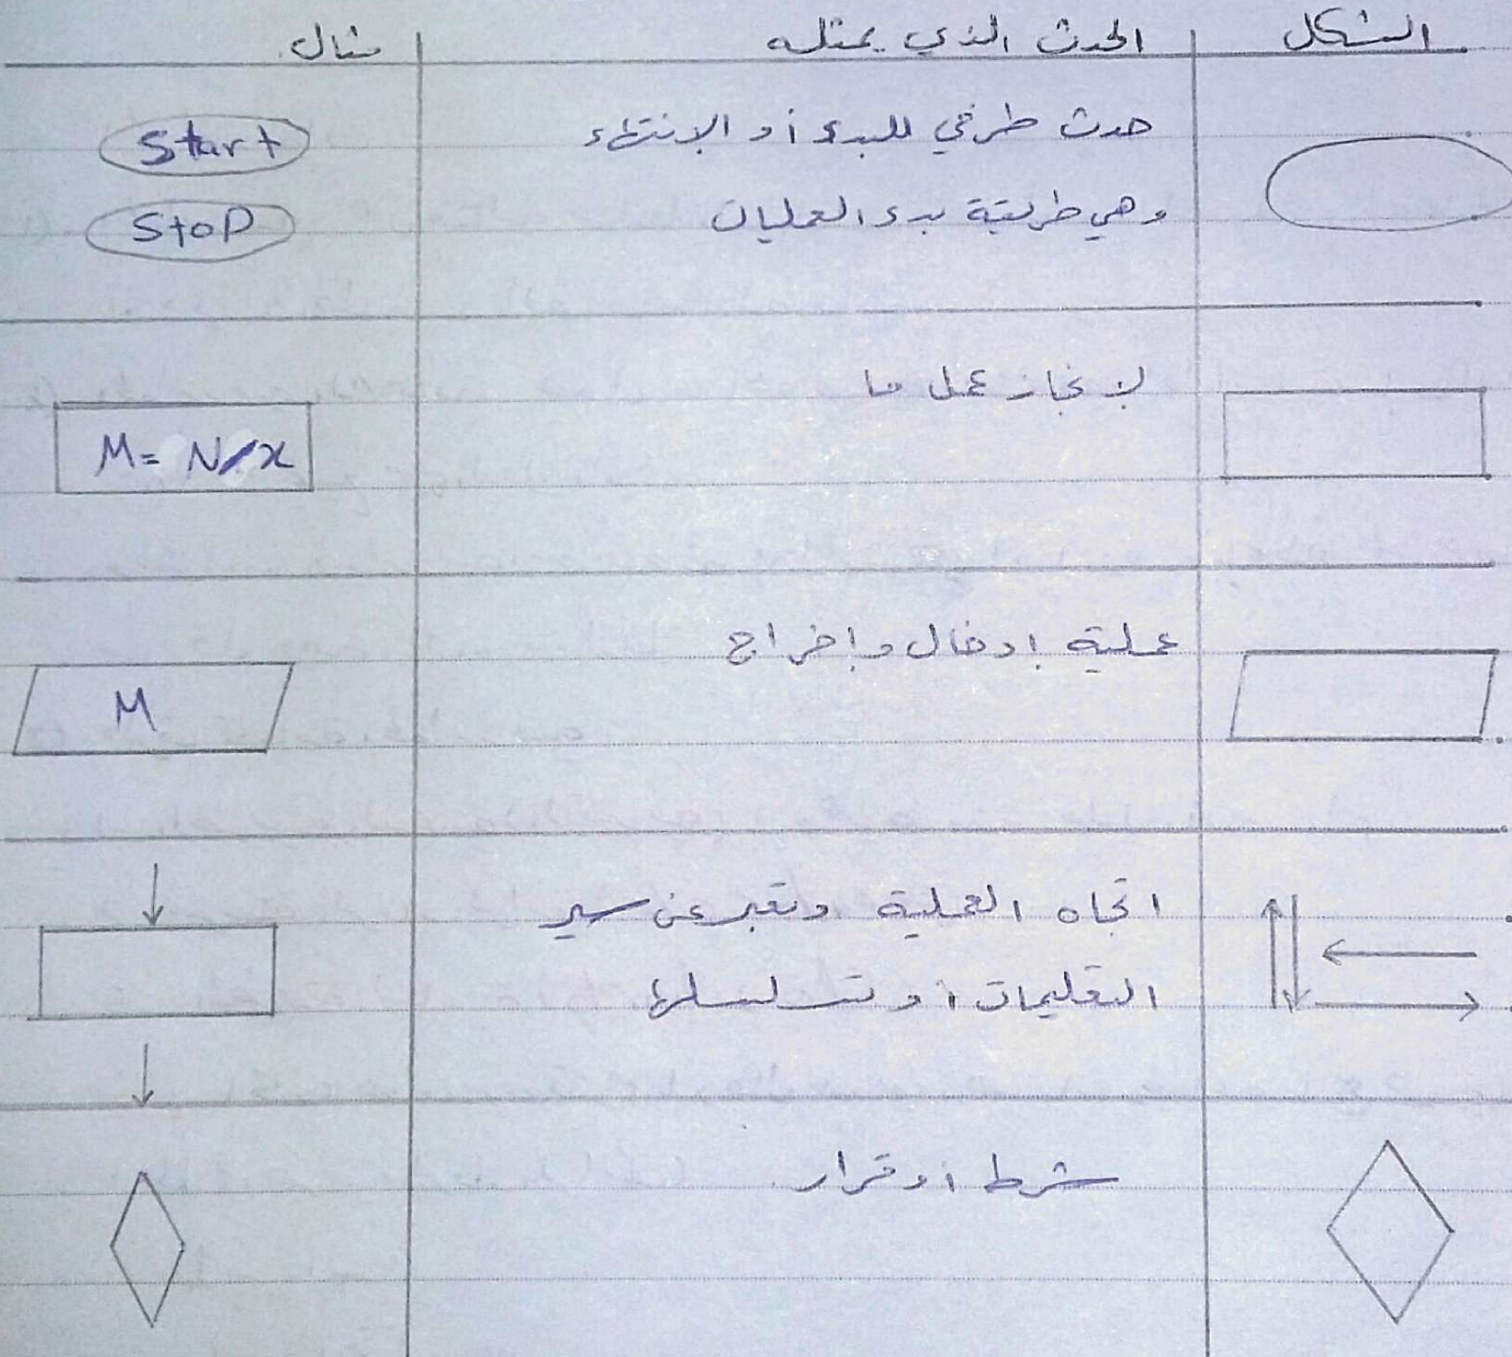 الشكل الحدث الذي يمثله مثال
حدث طرفي للبدء أو الإنتهاء
Start
وهي طريقة بدء العمليات
Stop
لإنجاز عمل ما
M= N/x
عملية إدخال وإخراج
M
اتجاه العملية وتعبر عن سير
التعليمات أو تسلسلها
شرط أو قرار